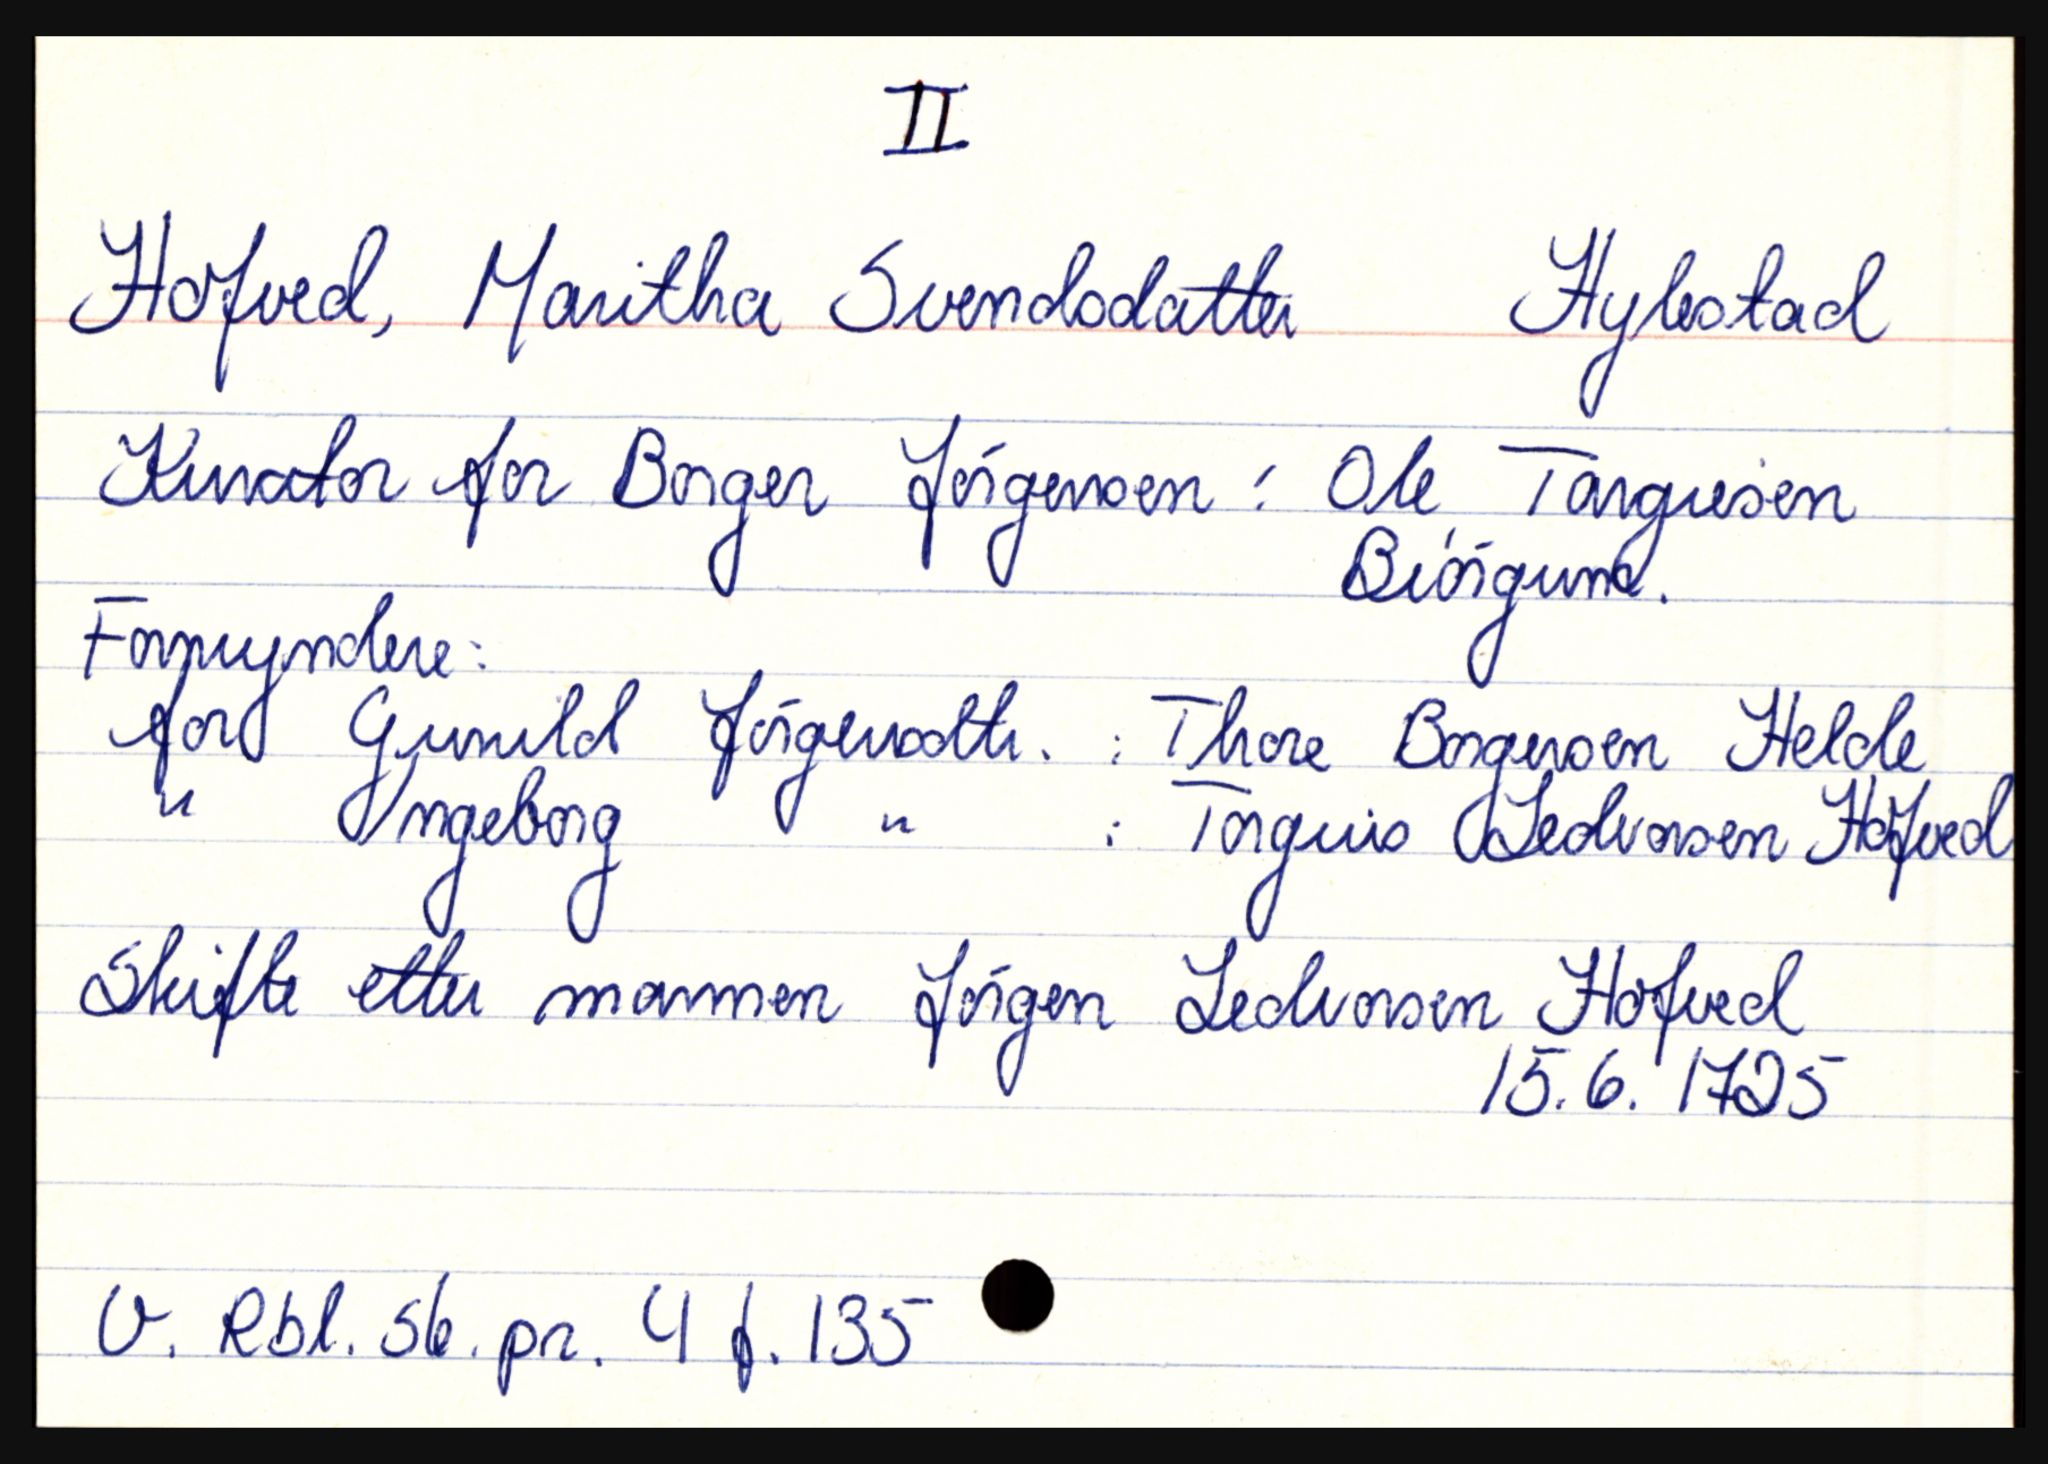 II
Hofved, Maritha Svendsdatter Hylestad
Kurator for Borger Jörgensen : Ole Targuesen
Biörgum.
Formyndere:
for Gunild Jörgensdtr. : Thore Borgersen Helde
" Ingeborg " : Torguis Ledvorsen Hofved
Skifte etter mannen Jörgen Ledvorsen Hofved
15.6. 1725
V. Rbl. sk. pr. 4 f. 135